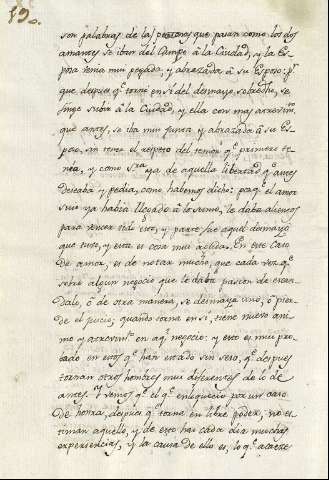 19.
son palabras de las personas que veian como los dos
amantes se iban del Campo â la Ciudad, y la Es-
posa venia mui pegada, y abrazada â su Esposo: p.r
que despues q.e torno en sí del desmayo, se
finge subir â la Ciudad, y ella con mas atrevim.to
que antes, se iba mui junta y abrazada â su Es-
poso, sin tener el respeto del temor q.e primero te-
nia, y como S.ra ya, de aquella libertad q.e antes
deseaba y pedia, como habemos dicho: porq.e el amor
suio ya habia llegado â lo sumo, le daba alientos
para vencer todo esto, y parece fue aquel desmayo
que tuvo, y esta es cosa mui
En este Caso
de amor, es de notar mucho, que cada vez q.e
sobre algun negocio que le daba pasion de escan-
dalo, ô de otra manera, se desmaya uno, ô pier-
de el juicio, quando torna en sí, tiene nuevo ani-
mo y atrevim.to en aq.l negocio: y esto es mui pro-
bado en esos q.e han estado sin seso, q.e despues
tornan otros hombres mui diferentes de lo de
antes. Y vemos q.e el q.e enloquecio por un caso
de honra, despues q.e torne en libre poder, no es-
timan aquello, y de esto hai cada dia muchas
experiencias, y la causa de ello es, lo q.e acaese